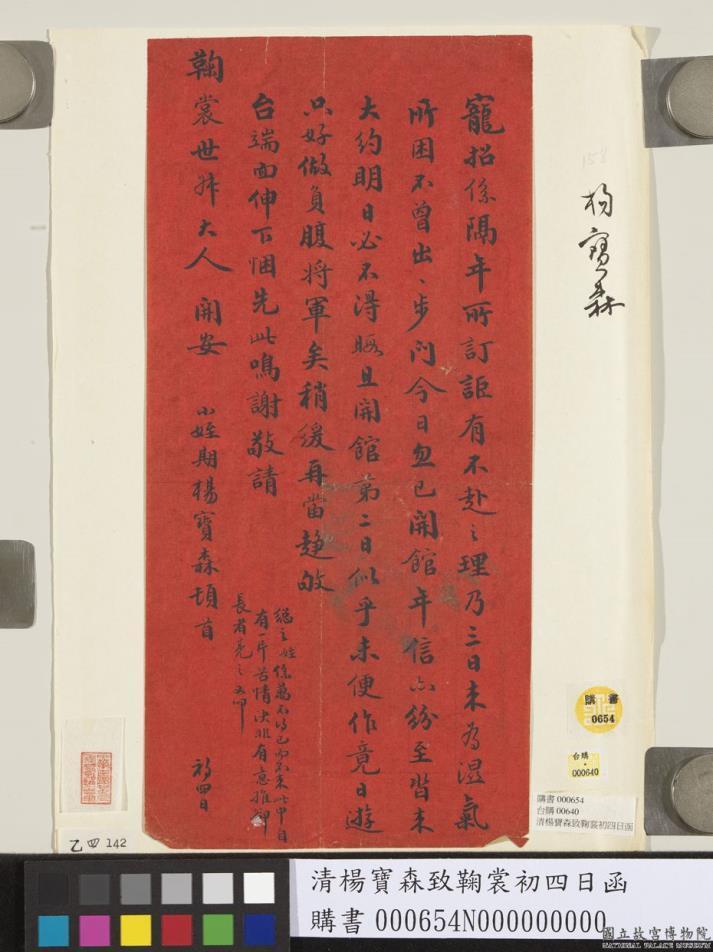 寵招係隔年所訂詎有不赴之理乃三日來為濕氣
所困不曾出〻步門今日忽已開館年信亦紛至沓來
大約明日必不得暇且開館第二日似乎未便作竟日遊
只好做負腹將軍矣稍緩再當趨敂
台端面伸下悃先此鳴謝敬請
鞠裳世叔大人 開安 小姪期楊寶森頓首 初四日
總之姪係萬不得已而不來此中自
有一片苦情決非有意推卸
長者亮之又叩
楊寶森
158
購 書
0654
台購
000640
購書 000654
台購 00640
清楊寶森致鞠裳初四日函
乙四 142
清楊寶森致鞠裳初四日函
購書 000654N000000000
國立故宮博物院
NATIONAL PALACE MUSEUM